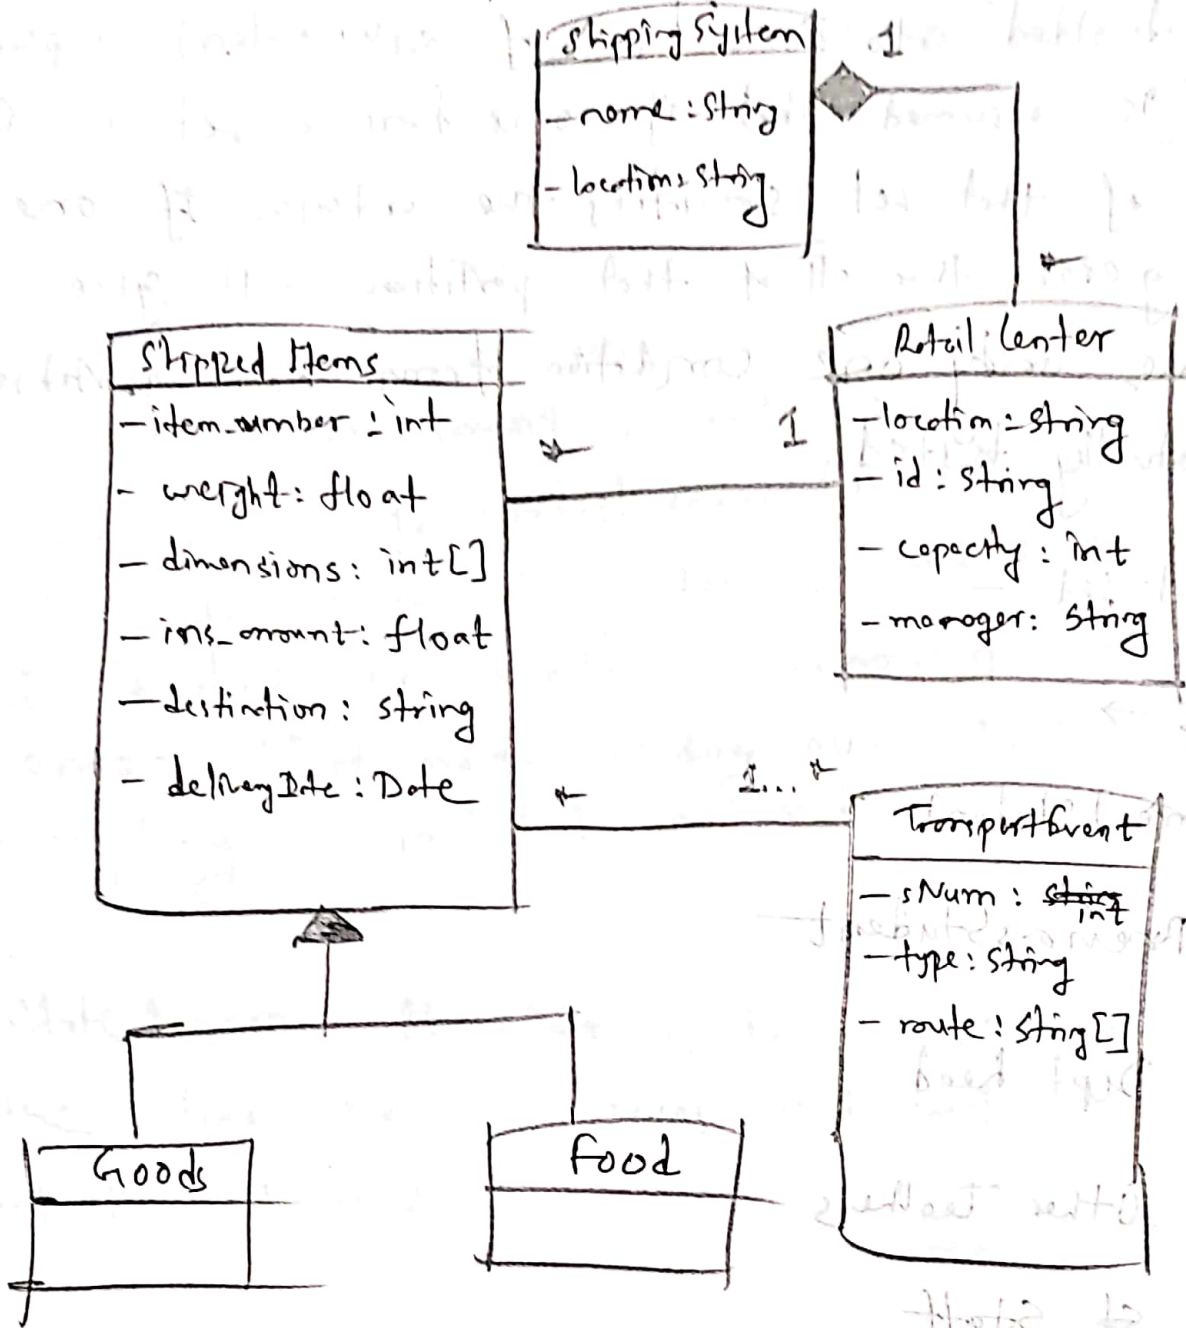 Shipping System
1
- name : String
- location : String
*
Shipped Items
- item_number : int
- weight : float
- dimensions : int[]
- ins_amount : float
- destination : string
- deliveryDate : Date
*
1
Retail Center
- location : string
- id : string
- capacity : int
- manager : string
*
1...*
TransportEvent
- sNum : string int
- type : string
- route : string[]
Goods
Food